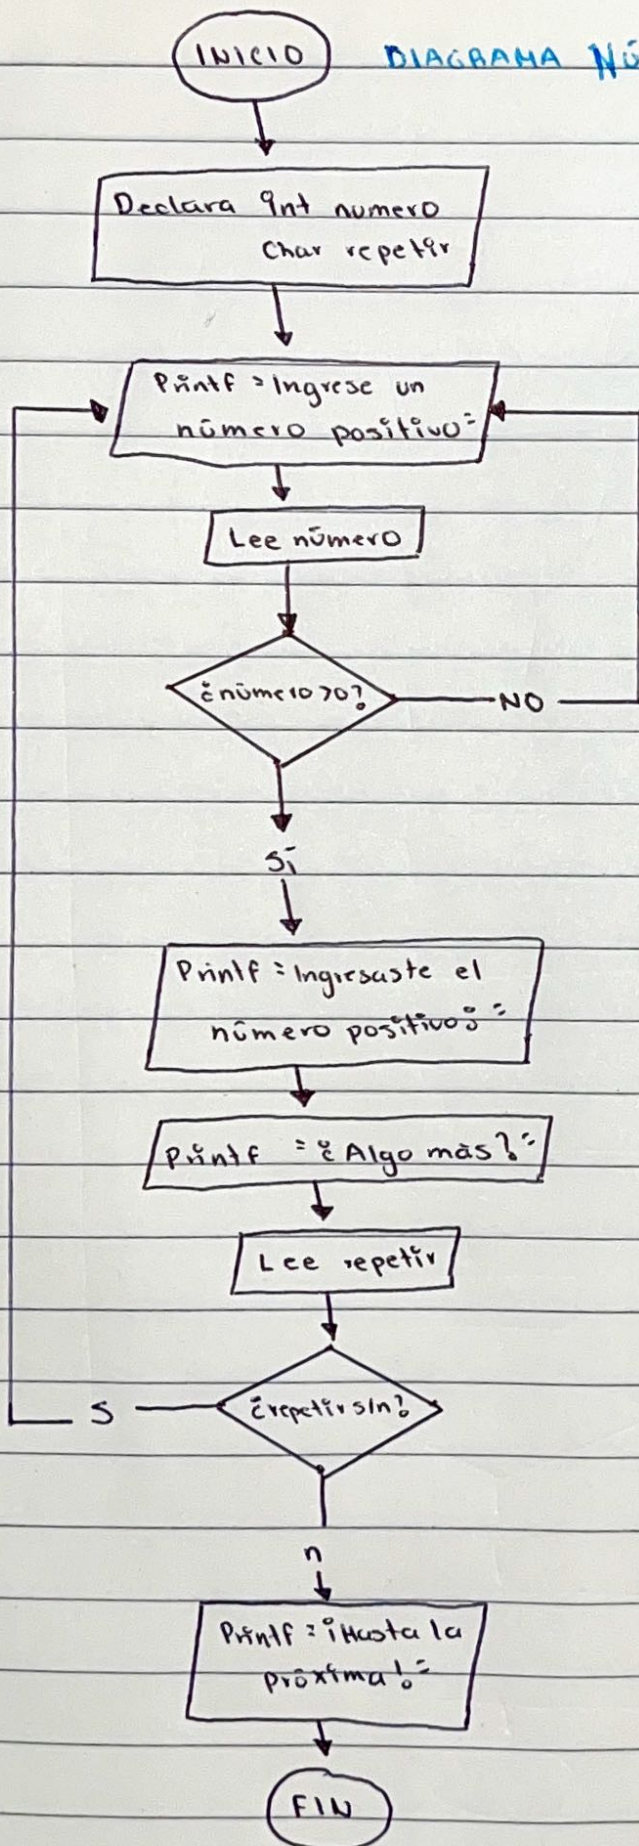 INICIO
DIAGRAMA NÚ
Declara int numero
Char repetir
Printf "Ingrese un
número positivo"
Lee número
¿número>0?
NO
Sí
Printf "Ingresaste el
número positivo: "
Printf "¿Algo más?"
Lee repetir
¿repetir s/n?
S
n
Printf "¡Hasta la
próxima!"
FIN